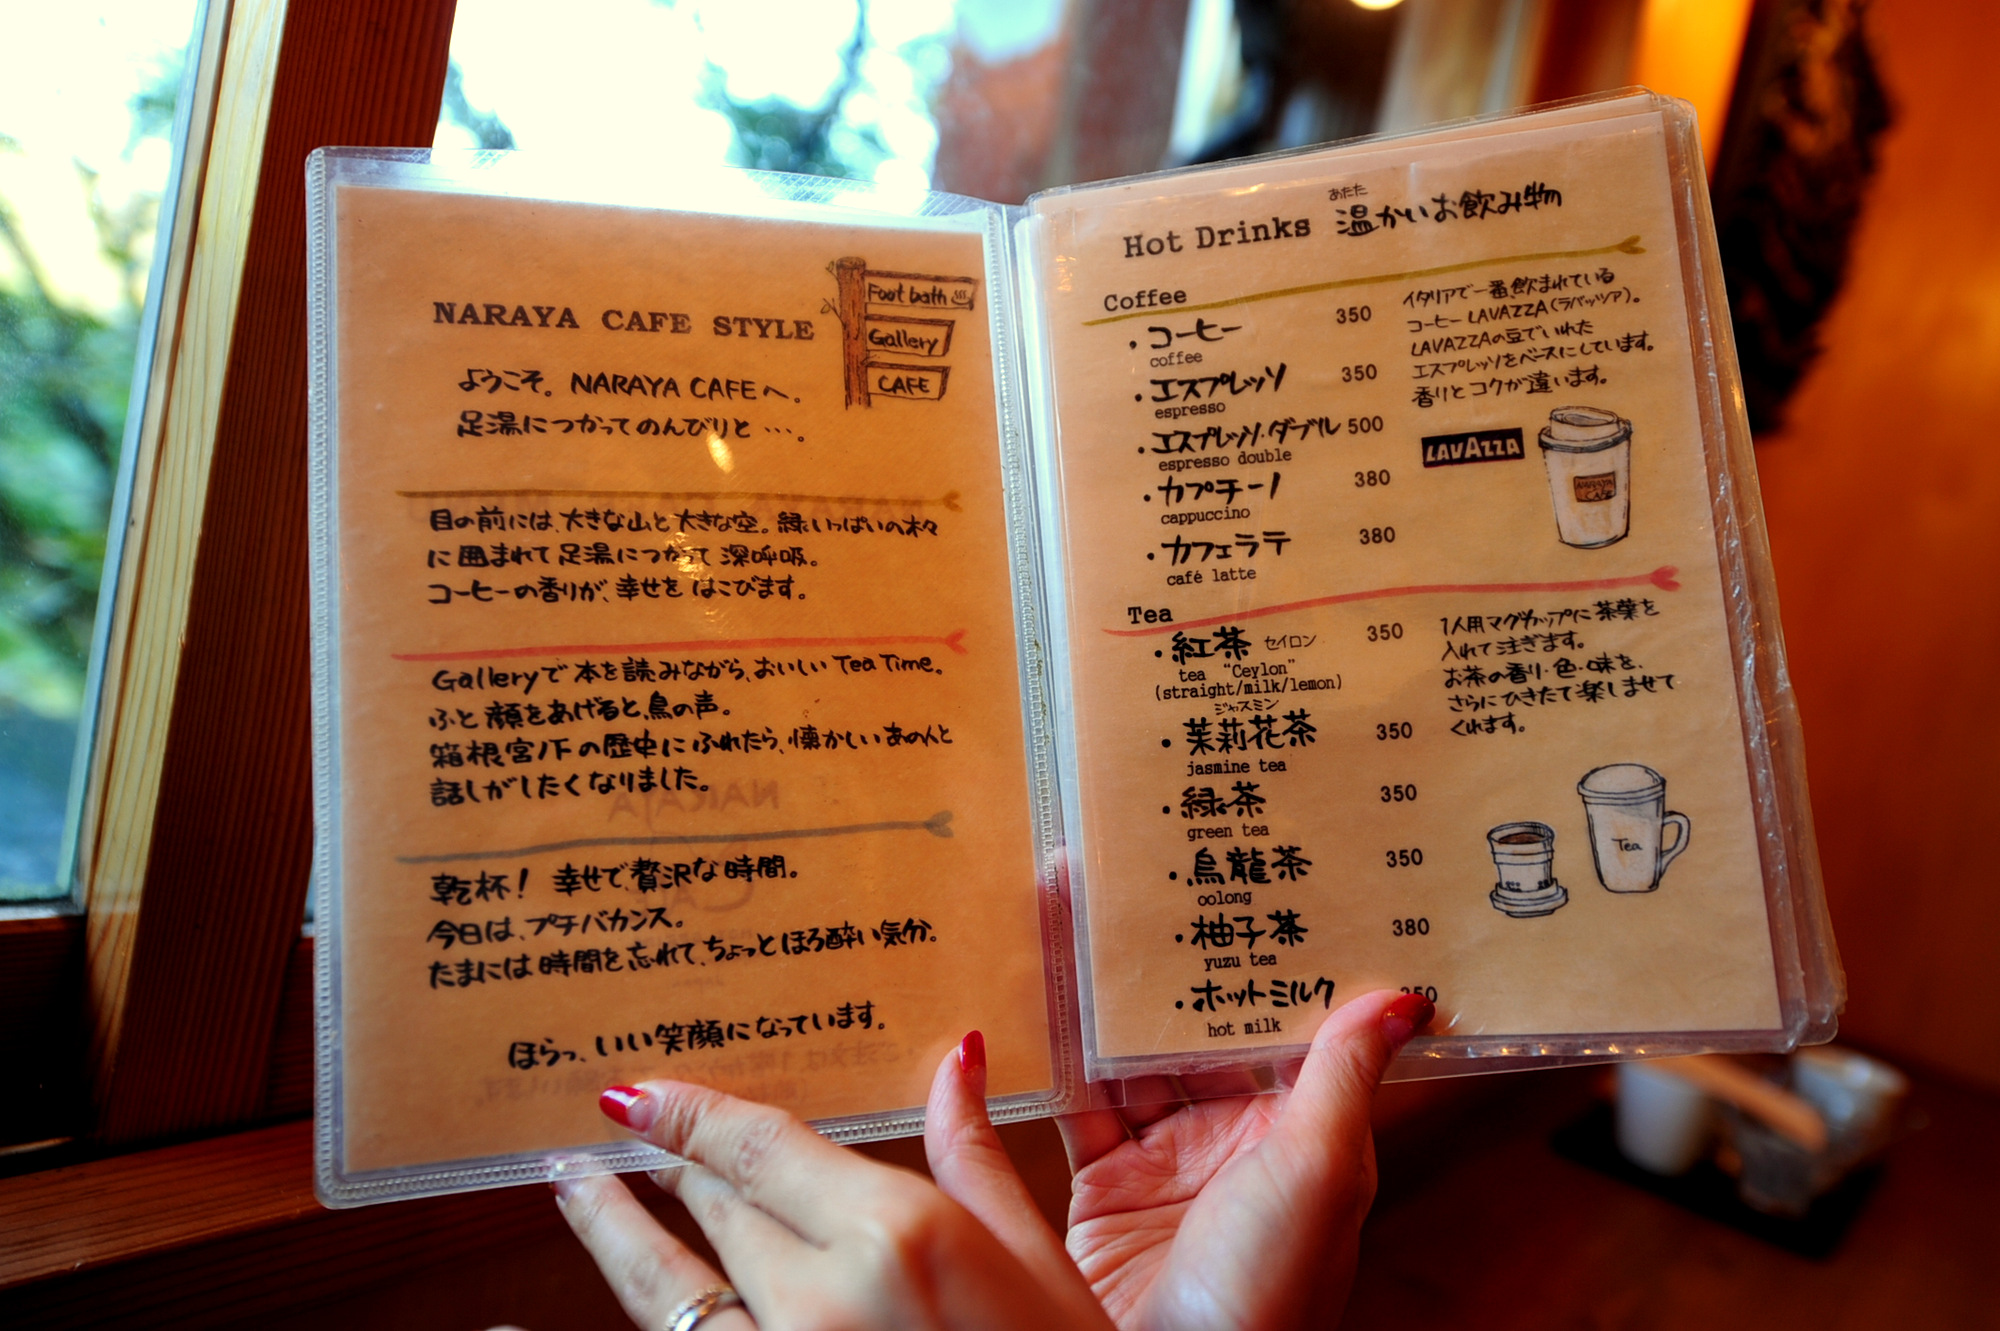 NARAYA CAFE STYLE
Foot bath
Gallery
CAFE
ようこそ。NARAYA CAFEへ。
足湯につかってのんびりと…。
目の前には、大きな山と大きな空。緑いっぱいの木々
に囲まれて足湯につかって深呼吸。
コーヒーの香りが、幸せをはこびます。
Galleryで本を読みながら、おいしいTea Time。
ふと顔をあげると、鳥の声。
箱根宮ノ下の歴史にふれたら、懐かしいあの人と
話しがしたくなりました。
乾杯！ 幸せで、贅沢な時間。
今日は、プチバカンス。
たまには時間を忘れて、ちょっとほろ酔い気分。
ほらっ、いい笑顔になっています。
Hot Drinks 温かいお飲み物
あたた
Coffee
・コーヒー 350
coffee
・エスプレッソ 350
espresso
・エスプレッソ・ダブル 500
espresso double
・カプチーノ 380
cappuccino
・カフェラテ 380
café latte
イタリアで一番、飲まれている
コーヒー LAVAZZA(ラバッツア)。
LAVAZZAの豆でいれた
エスプレッソをベースにしています。
香りとコクが違います。
LAVAZZA
NARAYA
CAFE
Tea
・紅茶 セイロン 350
tea "Ceylon"
(straight/milk/lemon)
ジャスミン
・茉莉花茶 350
jasmine tea
・緑茶 350
green tea
・烏龍茶 350
oolong
・柚子茶 380
yuzu tea
・ホットミルク 350
hot milk
1人用マグカップに茶葉を
入れて注ぎます。
お茶の香り・色・味を、
さらにひきたて楽しませて
くれます。
Tea